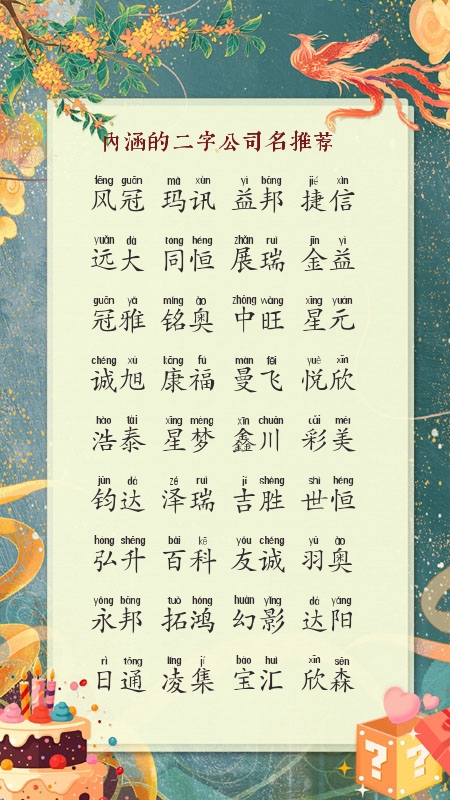 内涵的二字公司名推荐
fēng guān mǎ xùn yì bāng jié xìn
风冠 玛讯 益邦 捷信
yuǎn dà tóng héng zhǎn ruì jīn yì
远大 同恒 展瑞 金益
guān yǎ míng ào zhōng wàng xīng yuán
冠雅 铭奥 中旺 星元
chéng xù kāng fú màn fēi yuè xīn
诚旭 康福 曼飞 悦欣
hào tài xīng mèng xīn chuān cǎi měi
浩泰 星梦 鑫川 彩美
jūn dá zé ruì jí shèng shì héng
钧达 泽瑞 吉胜 世恒
hóng shēng bǎi kē yǒu chéng yǔ ào
弘升 百科 友诚 羽奥
yǒng bāng tuò hóng huàn yǐng dá yáng
永邦 拓鸿 幻影 达阳
rì tōng líng jí bǎo huì xīn sēn
日通 凌集 宝汇 欣森